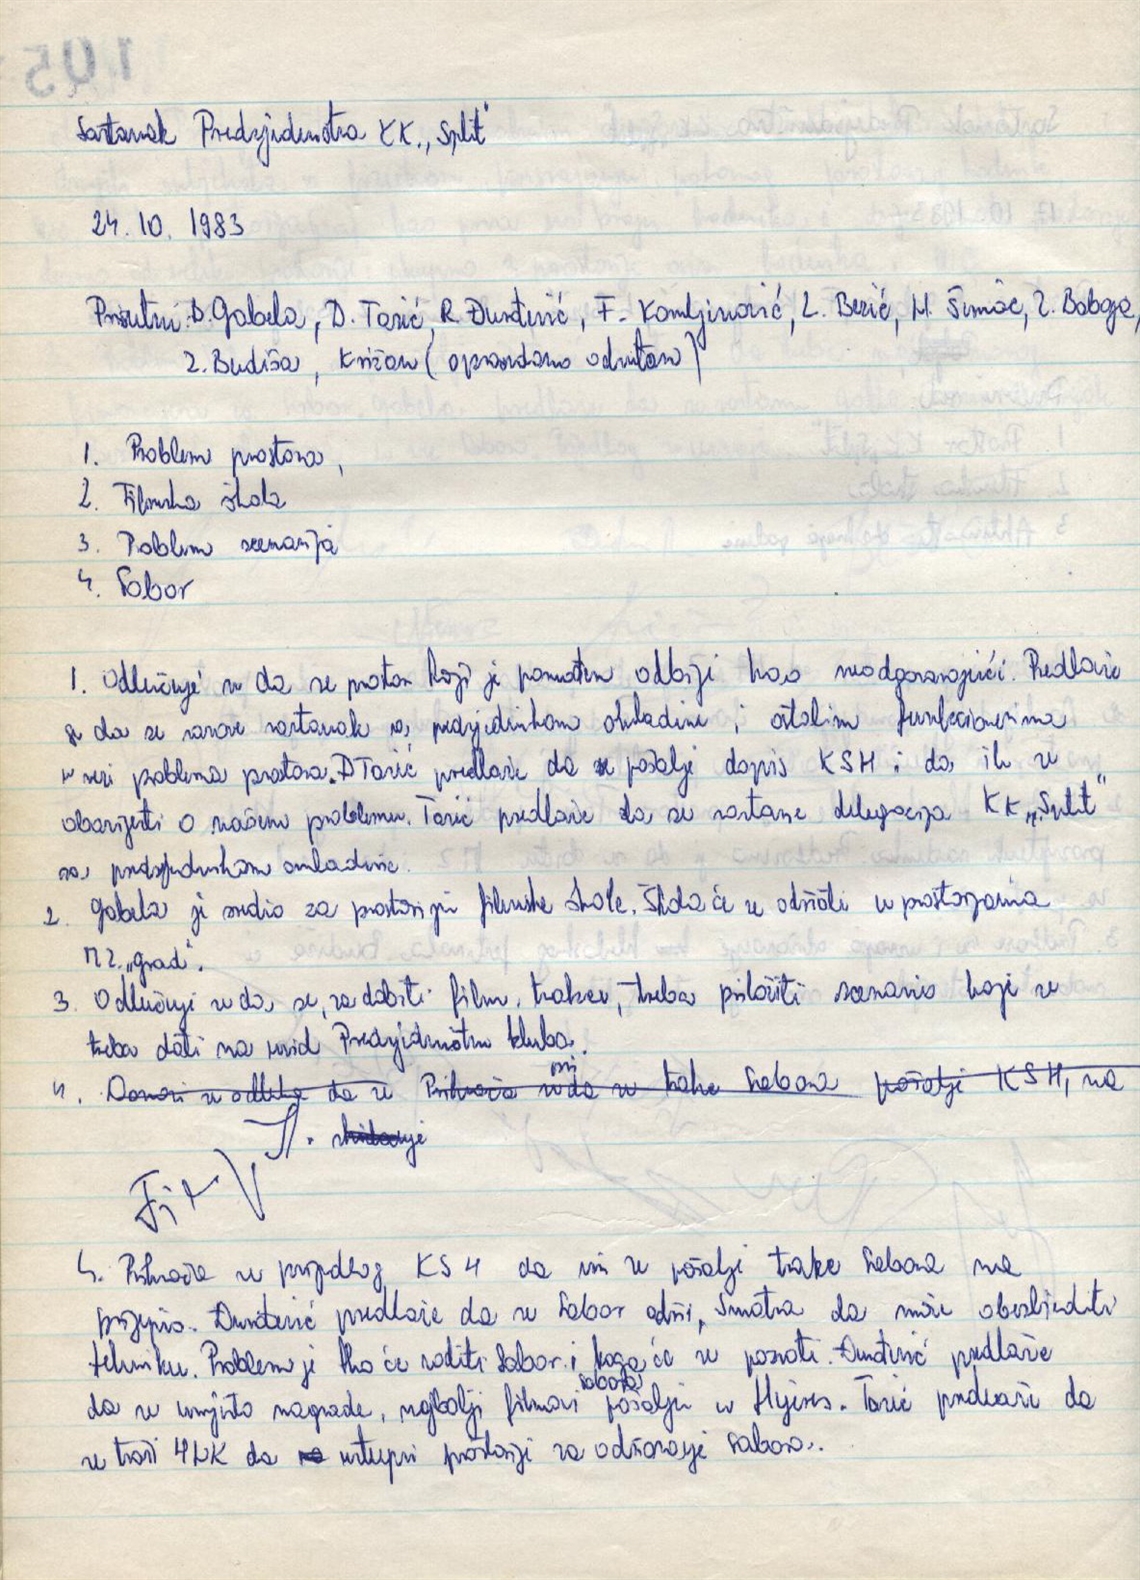 Sastanak Predsjedništva KK „Split“
24. 10. 1983
Prisutni: D. Gabela, D. Tasić, R. Đurđević, F. L. Bezić, M. Šimac, Z. Boboga,
Z. Budiša, Križan (opravdano odsutan)
1. Problem prostora,
2. Filmska škola
3. Problem scenarija
4. Sabor
1. Odlučuje se da se prostor koji je ponuđen odbije kao neodgovarajući. Predlaže
se da se sazove sastanak sa predsjednikom omladine i ostalim funkcionerima
u vezi problema prostora. D Tasić predlaže da se pošalje dopis KSH i da ih se
obavijesti o našem problemu. Tasić predlaže da se sastane delegacija KK „Split“
sa predsjednikom omladine.
2. Gabela je sredio za prostoriju filmske škole. Škola će se održati u prostorijama
MZ „grad“.
3. Odlučuje se da se, za dobiti film. traku, treba priložiti scenarij koji se
treba dati na uvid Predsjedništvu kluba.
4. Donosi se odluka da se Prihvaća se da se trake Sabora pošalje KSH, na
4. Prihvaća se prijedlog KSH da im se pošalje trake Sabora na
prijepis. Đurđević predlaže da se Sabor održi, Smatra da može obezbijediti
tehniku. Problem je tko će voditi Sabor i koga će se pozvati. Đurđević predlaže
da se umjesto nagrade, najbolji filmovi sabora pošalju u Hyères. Tasić predlaže da
se traži da ustupi prostorije za održavanje sabora.